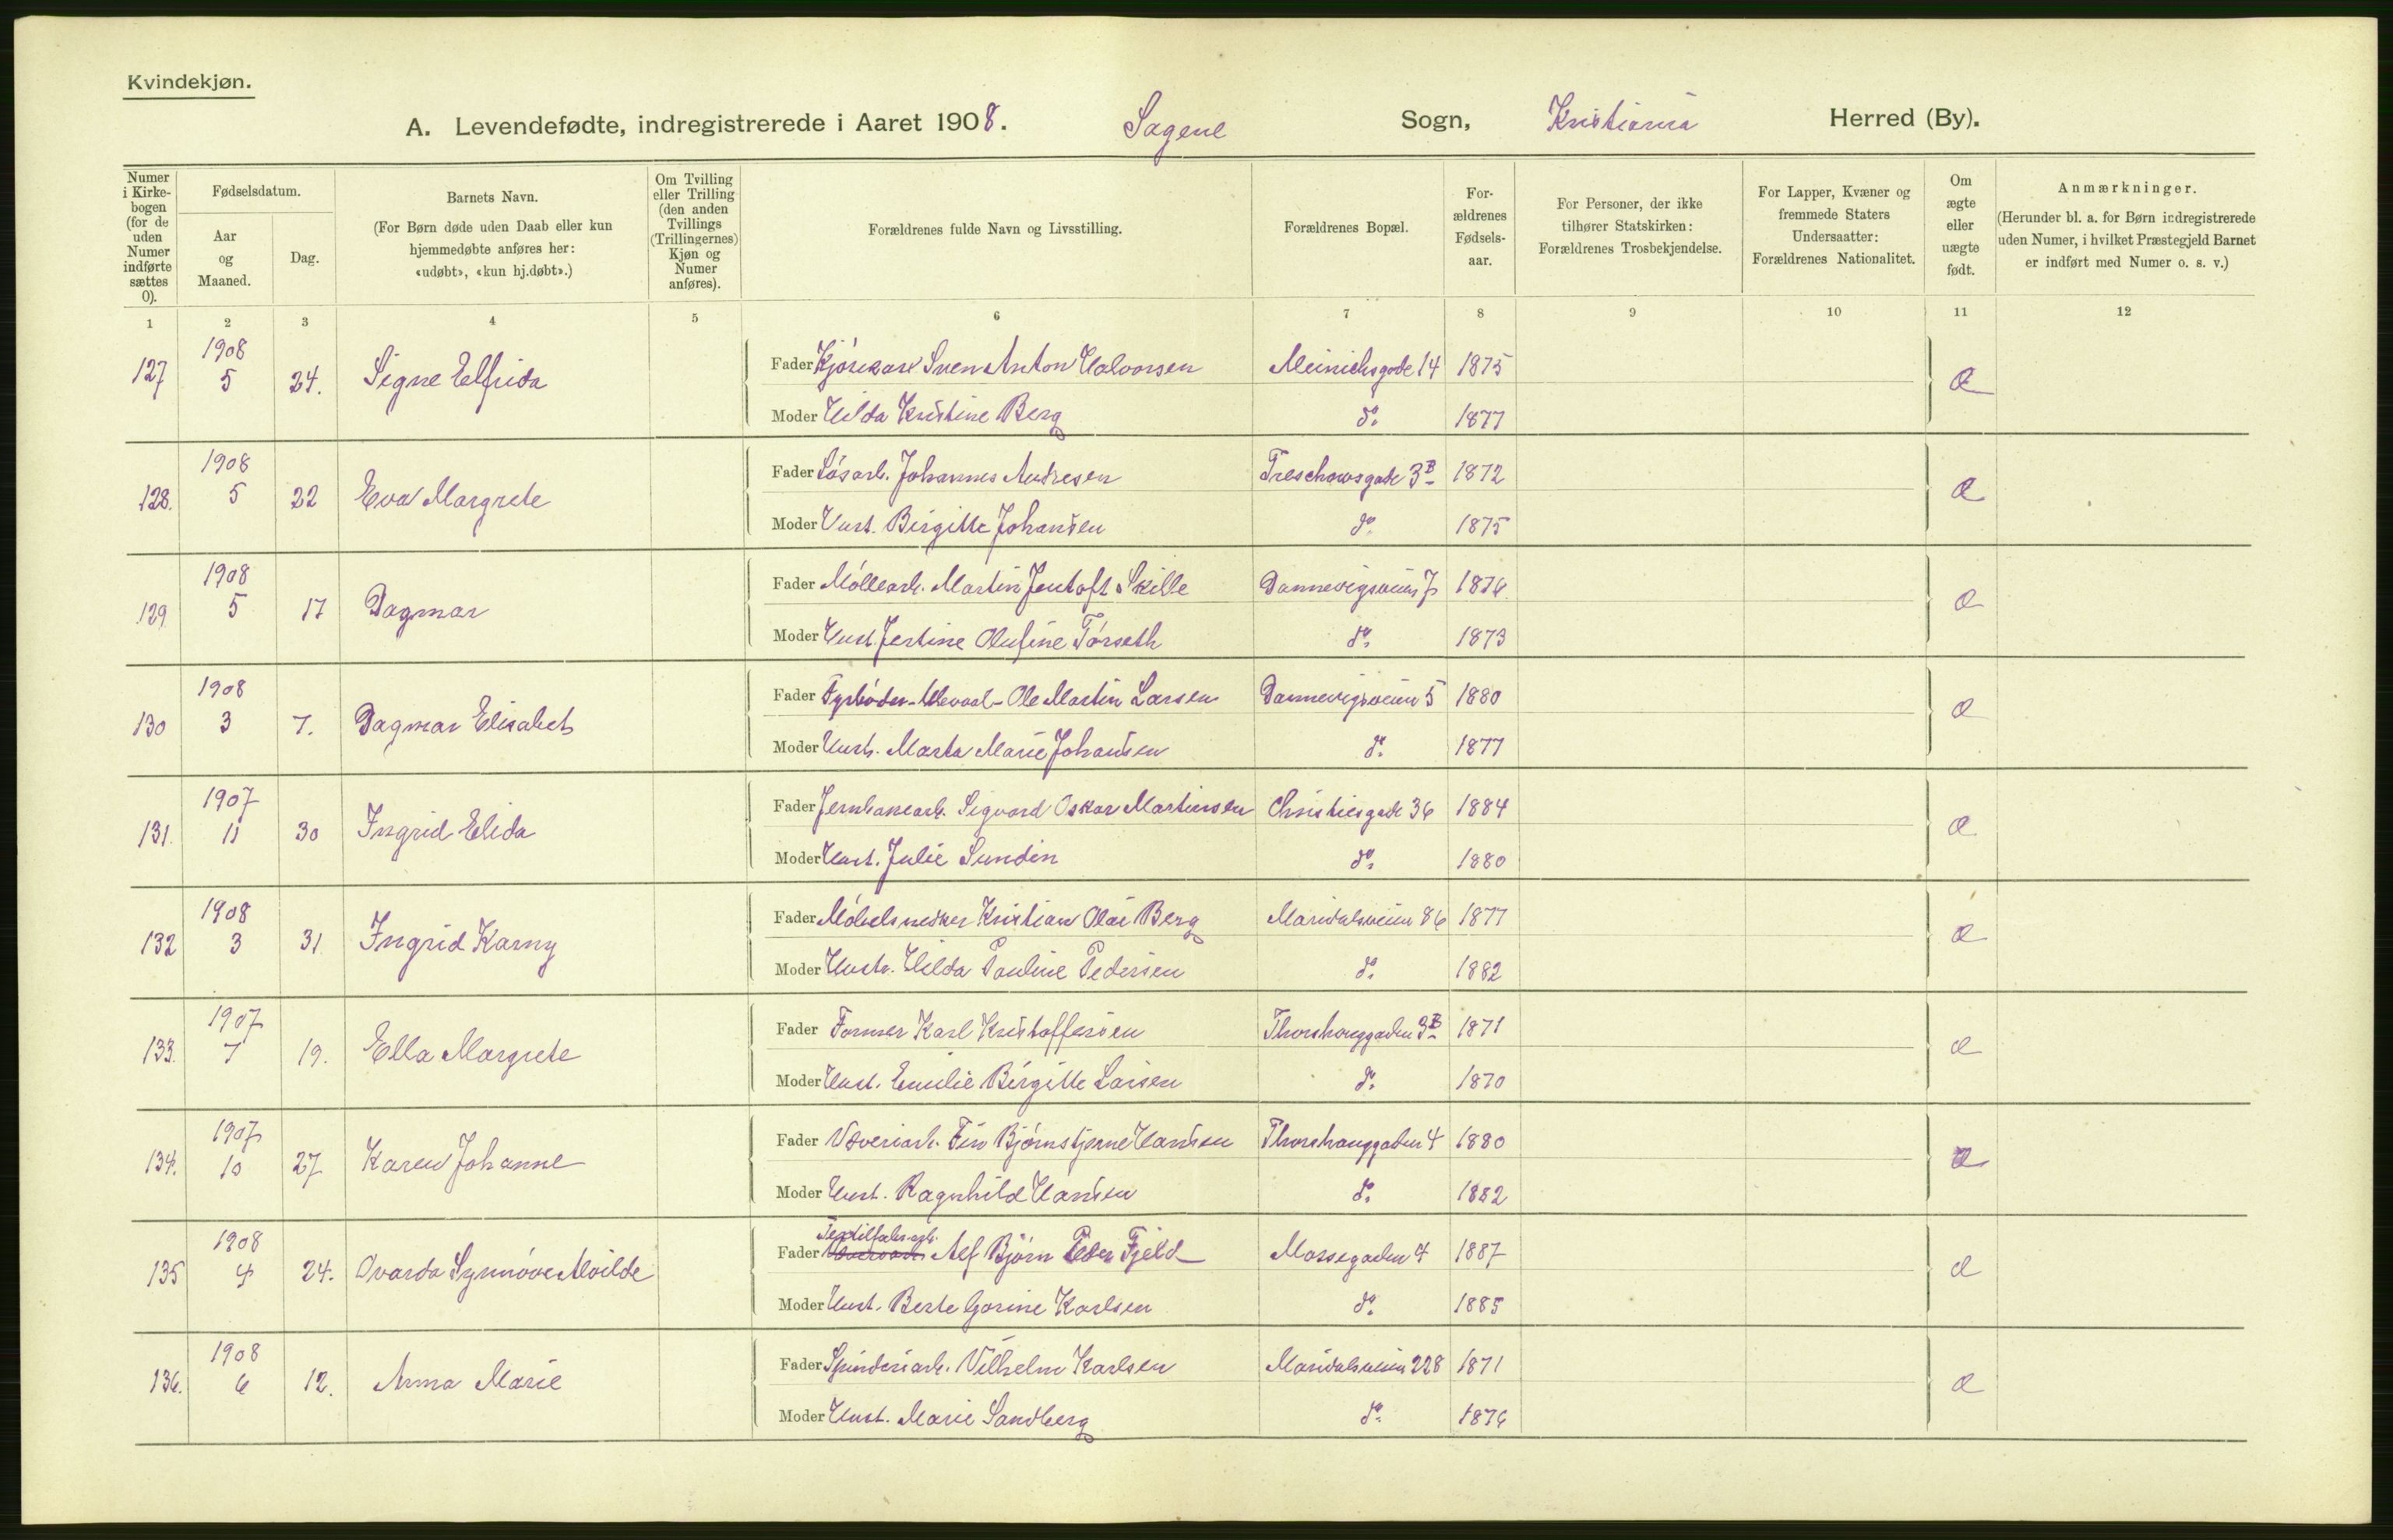 Kvindekjøn.
A. Levendefødte, indregistrerede i Aaret 1908. Sagene Sogn, Kristiania Herred (By).
Numer i Kirkebogen (for de uden Numer indførte sættes 0).
Fødselsdatum.
Aar og Maaned.
Dag.
Barnets Navn.
(For Børn døde uden Daab eller kun hjemmedøbte anføres her: «udøbt», «kun hj.døbt».)
Om Tvilling eller Trilling (den anden Tvillings (Trillingernes) Kjøn og Numer anføres).
Forældrenes fulde Navn og Livsstilling.
Forældrenes Bopæl.
Forældrenes Fødselsaar.
For Personer, der ikke tilhører Statskirken: Forældrenes Trosbekjendelse.
For Lapper, Kvæner og fremmede Staters Undersaatter: Forældrenes Nationalitet.
Om ægte eller uægte født.
Anmærkninger.
(Herunder bl. a. for Børn indregistrerede uden Numer, i hvilket Præstegjeld Barnet er indført med Numer o. s. v.)
1 2 3 4 5 6 7 8 9 10 11 12
127 1908 5 24. Signe Elfrida Fader Kjørekarl Sven Anton Halvorsen Meinichsgade 14 1875 Æ
Moder Hilda Kristine Berg do. 1877
128. 1908 5 22 Eva Margrete Fader Løsarb. Johannes Andresen Treschowsgade 3B 1872 Æ
Moder Hust. Birgitte Johansen do. 1875
129 1908 5 17 Dagmar Fader Møllearb. Martin Jentoft Skille Dannevigsveien 7 1876 Æ
Moder Hust. Jertine Olufine Førseth do. 1873
130 1908 3 7. Dagmar Elisabet Fader Fyrbøder Ullevaal Ole Martin Larsen Dannevigsveien 5 1880 Æ
Moder Hustr. Marta Marie Johansen do. 1877
131. 1907 11 30 Ingrid Elida Fader Jernbanearb. Sigvard Oskar Martinsen Christiesgade 36 1884 Æ
Moder Hust. Julie Sundin do. 1880
132 1908 3 31. Ingrid Karny Fader Møbelsnedker Kristian Olai Berg Maridalsveien 86 1877 Æ
Moder Hustr. Hilda Pauline Pedersen do. 1882
133. 1907 7 19. Ella Margrete Fader Former Karl Kristoffersen Thorshauggaden 3B 1871 Æ
Moder Hust. Emilie Birgitte Larsen do. 1870
134. 1907 10 27 Karen Johanne Fader Væveriarb. Fin Bjørnstjerne Hansen Thorshauggaden 4 1880 Æ
Moder Hust. Ragnhild Hansen do. 1882
135 1908 4 24. Ovarda Synnøve Alvilde Fader Textilfabr.arb. Alf Bjørn Peder Fjeld Mossegaden 4 1887 Æ
Moder Hust. Berte Gorine Karlsen do. 1885
136. 1908 6 12. Anna Marie Fader Spinderiarb. Vilhelm Karlsen Maridalsveien 228 1871 Æ
Moder Hust. Marie Sandberg do. 1876